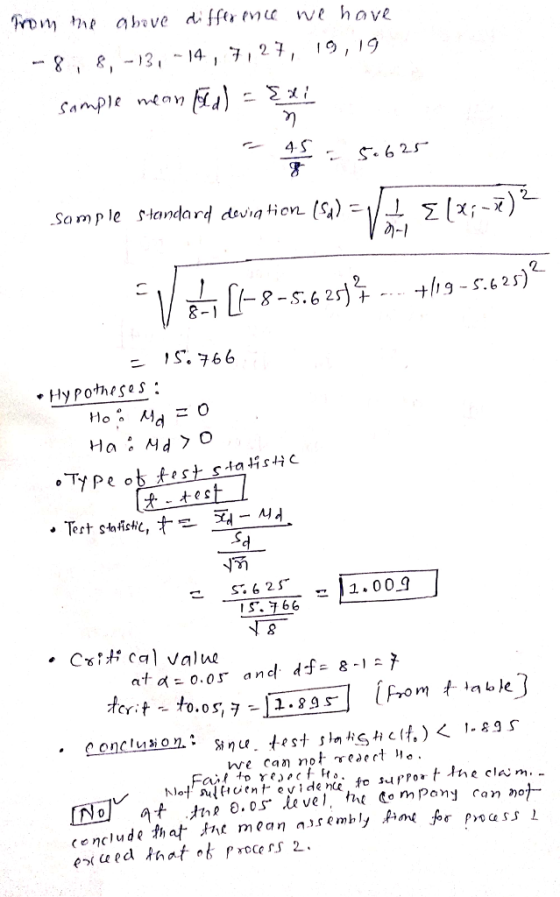 From the above difference we have
-8, 8, -13, -14, 7, 27, 19, 19
sample mean (x̄d) = Σxi / n
= 45 / 8 = 5.625
Sample standard deviation (Sd) = √(1/(n-1) Σ(xi - x̄)²
= √(1/(8-1) [(-8-5.625)² + ... + (19-5.625)²
= 15.766
• Hypotheses :
Ho : Md = 0
Ha : Md > 0
• Type of test statistic
t-test
• Test statistic, t = (x̄d - Md) / (Sd / √n)
= 5.625 / (15.766 / √8) = 1.009
• Critical value
at α = 0.05 and df = 8-1 = 7
tcrit = t0.05, 7 = 1.895 [from t table]
• conclusion : since test statistic (t.) < 1.895
we can not reject Ho.
Fail to reject Ho.
Not sufficient evidence to support the claim.
No ✓ at the 0.05 level, the company can not
conclude that the mean assembly time for process 1
exceed that of process 2.